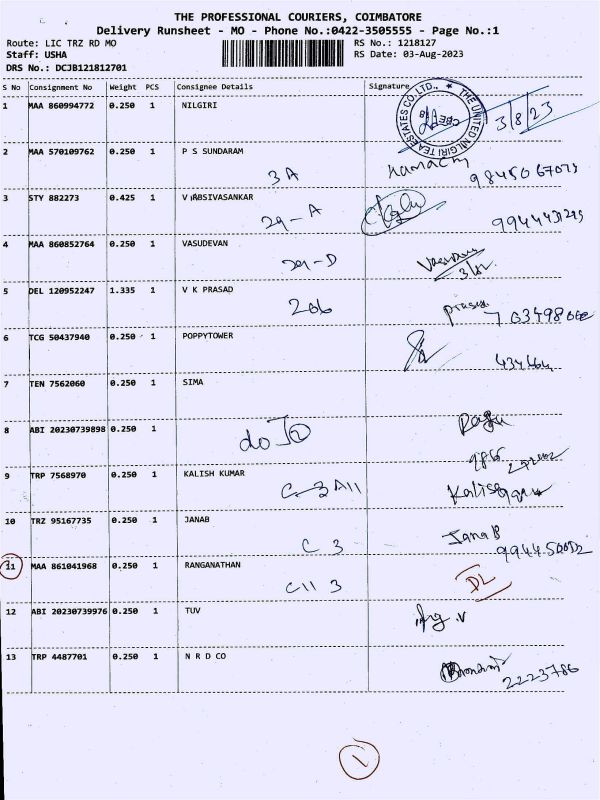 THE PROFESSIONAL COURIERS, COIMBATORE
Delivery Runsheet - MO - Phone No.:0422-3505555 - Page No.:1
Route: LIC TRZ RD MO RS No.: 1218127
Staff: USHA RS Date: 03-Aug-2023
DRS No.: DCJB121812701
S No Consignment No Weight PCS Consignee Details Signature
THE UNITED NILGIRI TEA ESTATES CO. LTD., * CBE
1 MAA 860994772 0.250 1 NILGIRI 3/8/23
2 MAA 570109762 0.250 1 P S SUNDARAM
3A
3 STY 882273 0.425 1
29-A
4 MAA 860852764 0.250 1 VASUDEVAN
29-D
5 DEL 120952247 1.335 1 V K PRASAD
206
6 TCG 50437940 0.250 1 POPPYTOWER
7 TEN 7562060 0.250 1 SIMA
8 ABI 20230739898 0.250 1
do
9 TRP 7568970 0.250 1 KALISH KUMAR
10 TRZ 95167735 0.250 1 JANAB
C 3 Jana B
11 MAA 861041968 0.250 1 RANGANATHAN
C11 3 DL
12 ABI 20230739976 0.250 1 TUV
13 TRP 4487701 0.250 1 N R D CO
2223786
1